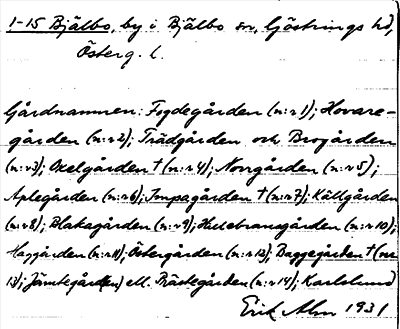 1-15 Bjälbo, by i Bjälbo sn, Göstrings hd,
Österg. l.
Gårdnamnen: Fogdegården (n:r 1); Hovare-
gården (n:r 2); Trädgården och Brogården
(n:r 3); Oxelgården † (n:r 4); Norrgården (n:r 5);
Aplegården (n:r 6); Impagården † (n:r 7); Källgården
(n:r 8); Blakagården (n:r 9); (n:r 10);
Haggården (n:r 11); Östergården (n:r 12); Baggegården † (n:r
13); Jämtegården ell. Prästegården (n:r 14); Karlslund
Erik Alm 1931